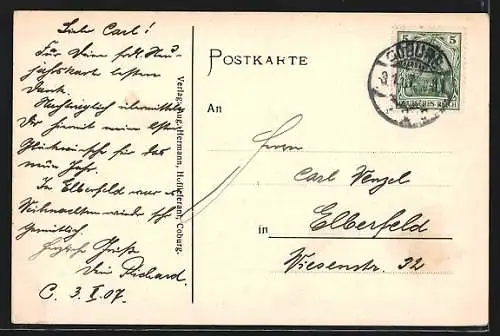 Lieber Carl!
Für Deine frdl. Neu-
jahrskarte besten
Dank.
Nachträglich übermittle
Dir hiermit meine besten
Glückwünsche für das
neue Jahr.
In Elberfeld war es
Weihnachten wieder sehr
gemütlich.
Herzliche Grüße
Dein Richard.
C. 3. I. 07.
Verlag: Aug. Hermann, Hoflieferant, Coburg.
POSTKARTE
An
Herrn
Carl Wenzel
in Elberfeld
Wiesenstr. 32
5 5
COBURG
DEUTSCHES REICH